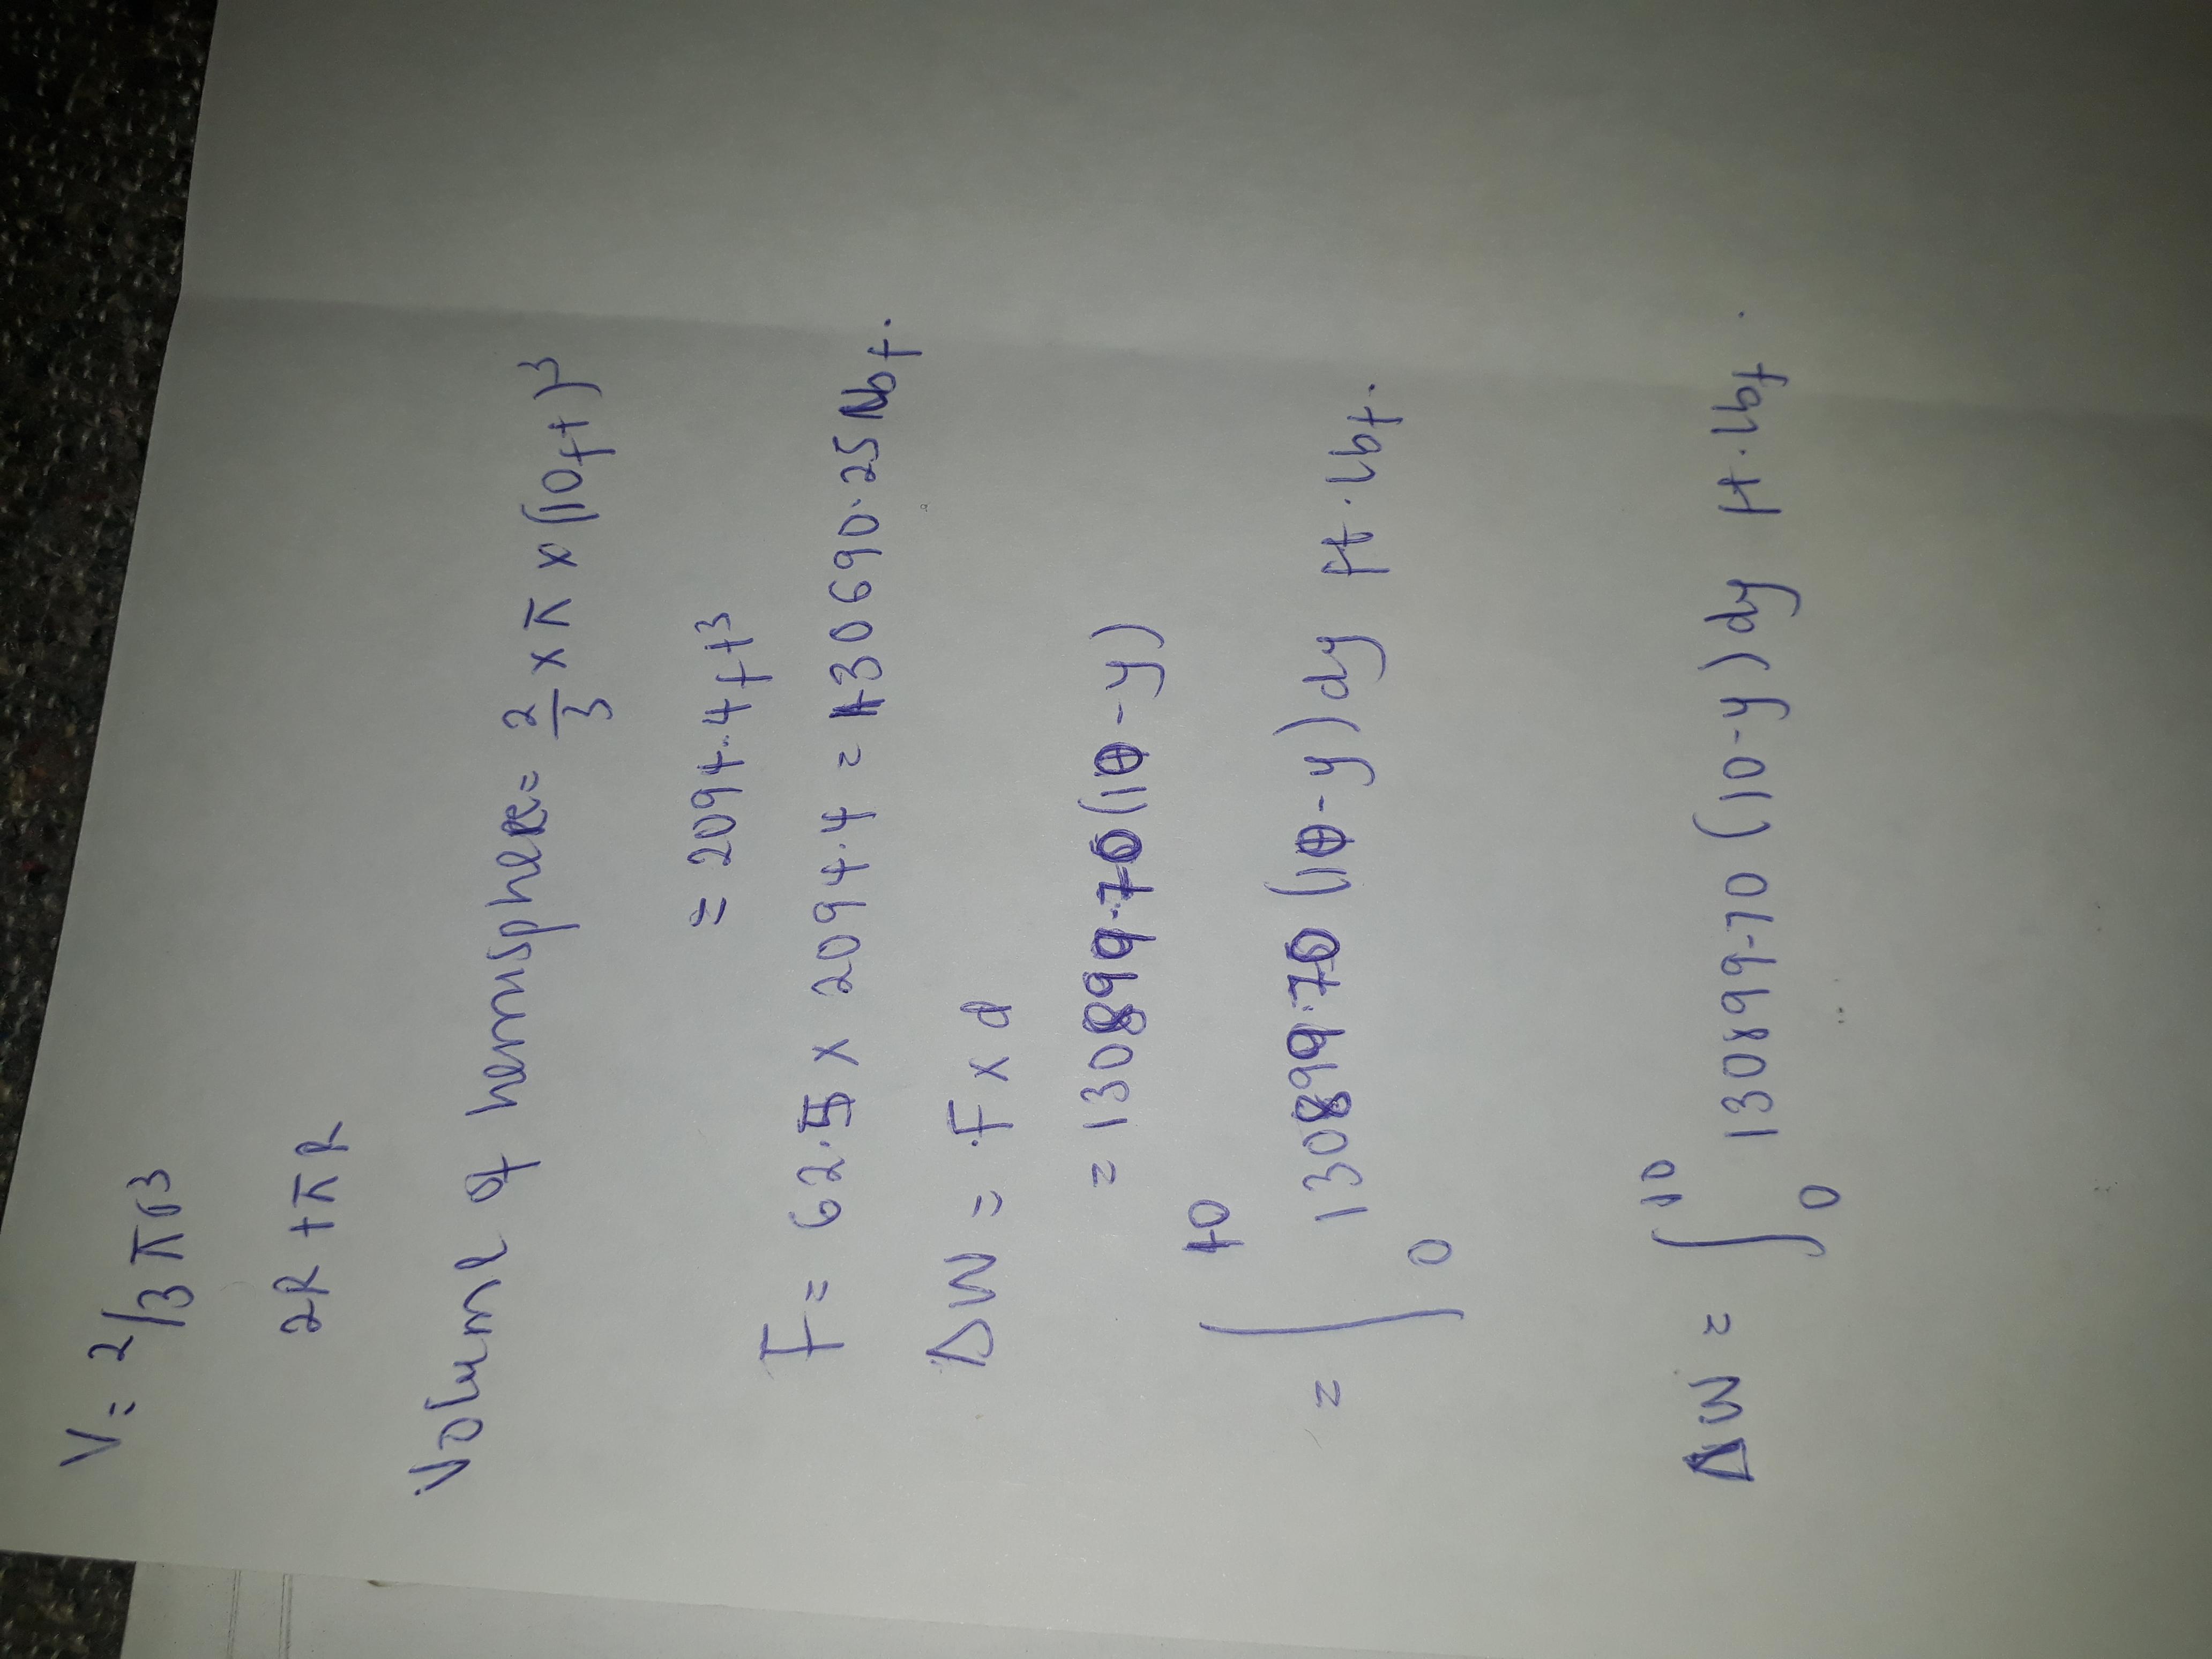 V = 2/3 π r³
2R + π R
Volume of hemisphere = 2/3 × π × (10ft)³
= 2094.4 ft³
F = 62.5 × 2094.4 = 130690.25 lbf.
ΔW = F × d
= 130899.70 (10 - y)
= ∫₀¹⁰ 130899.70 (10 - y) dy ft. lbf.
ΔW = ∫₀¹⁰ 130899.70 (10 - y) dy ft. lbf.